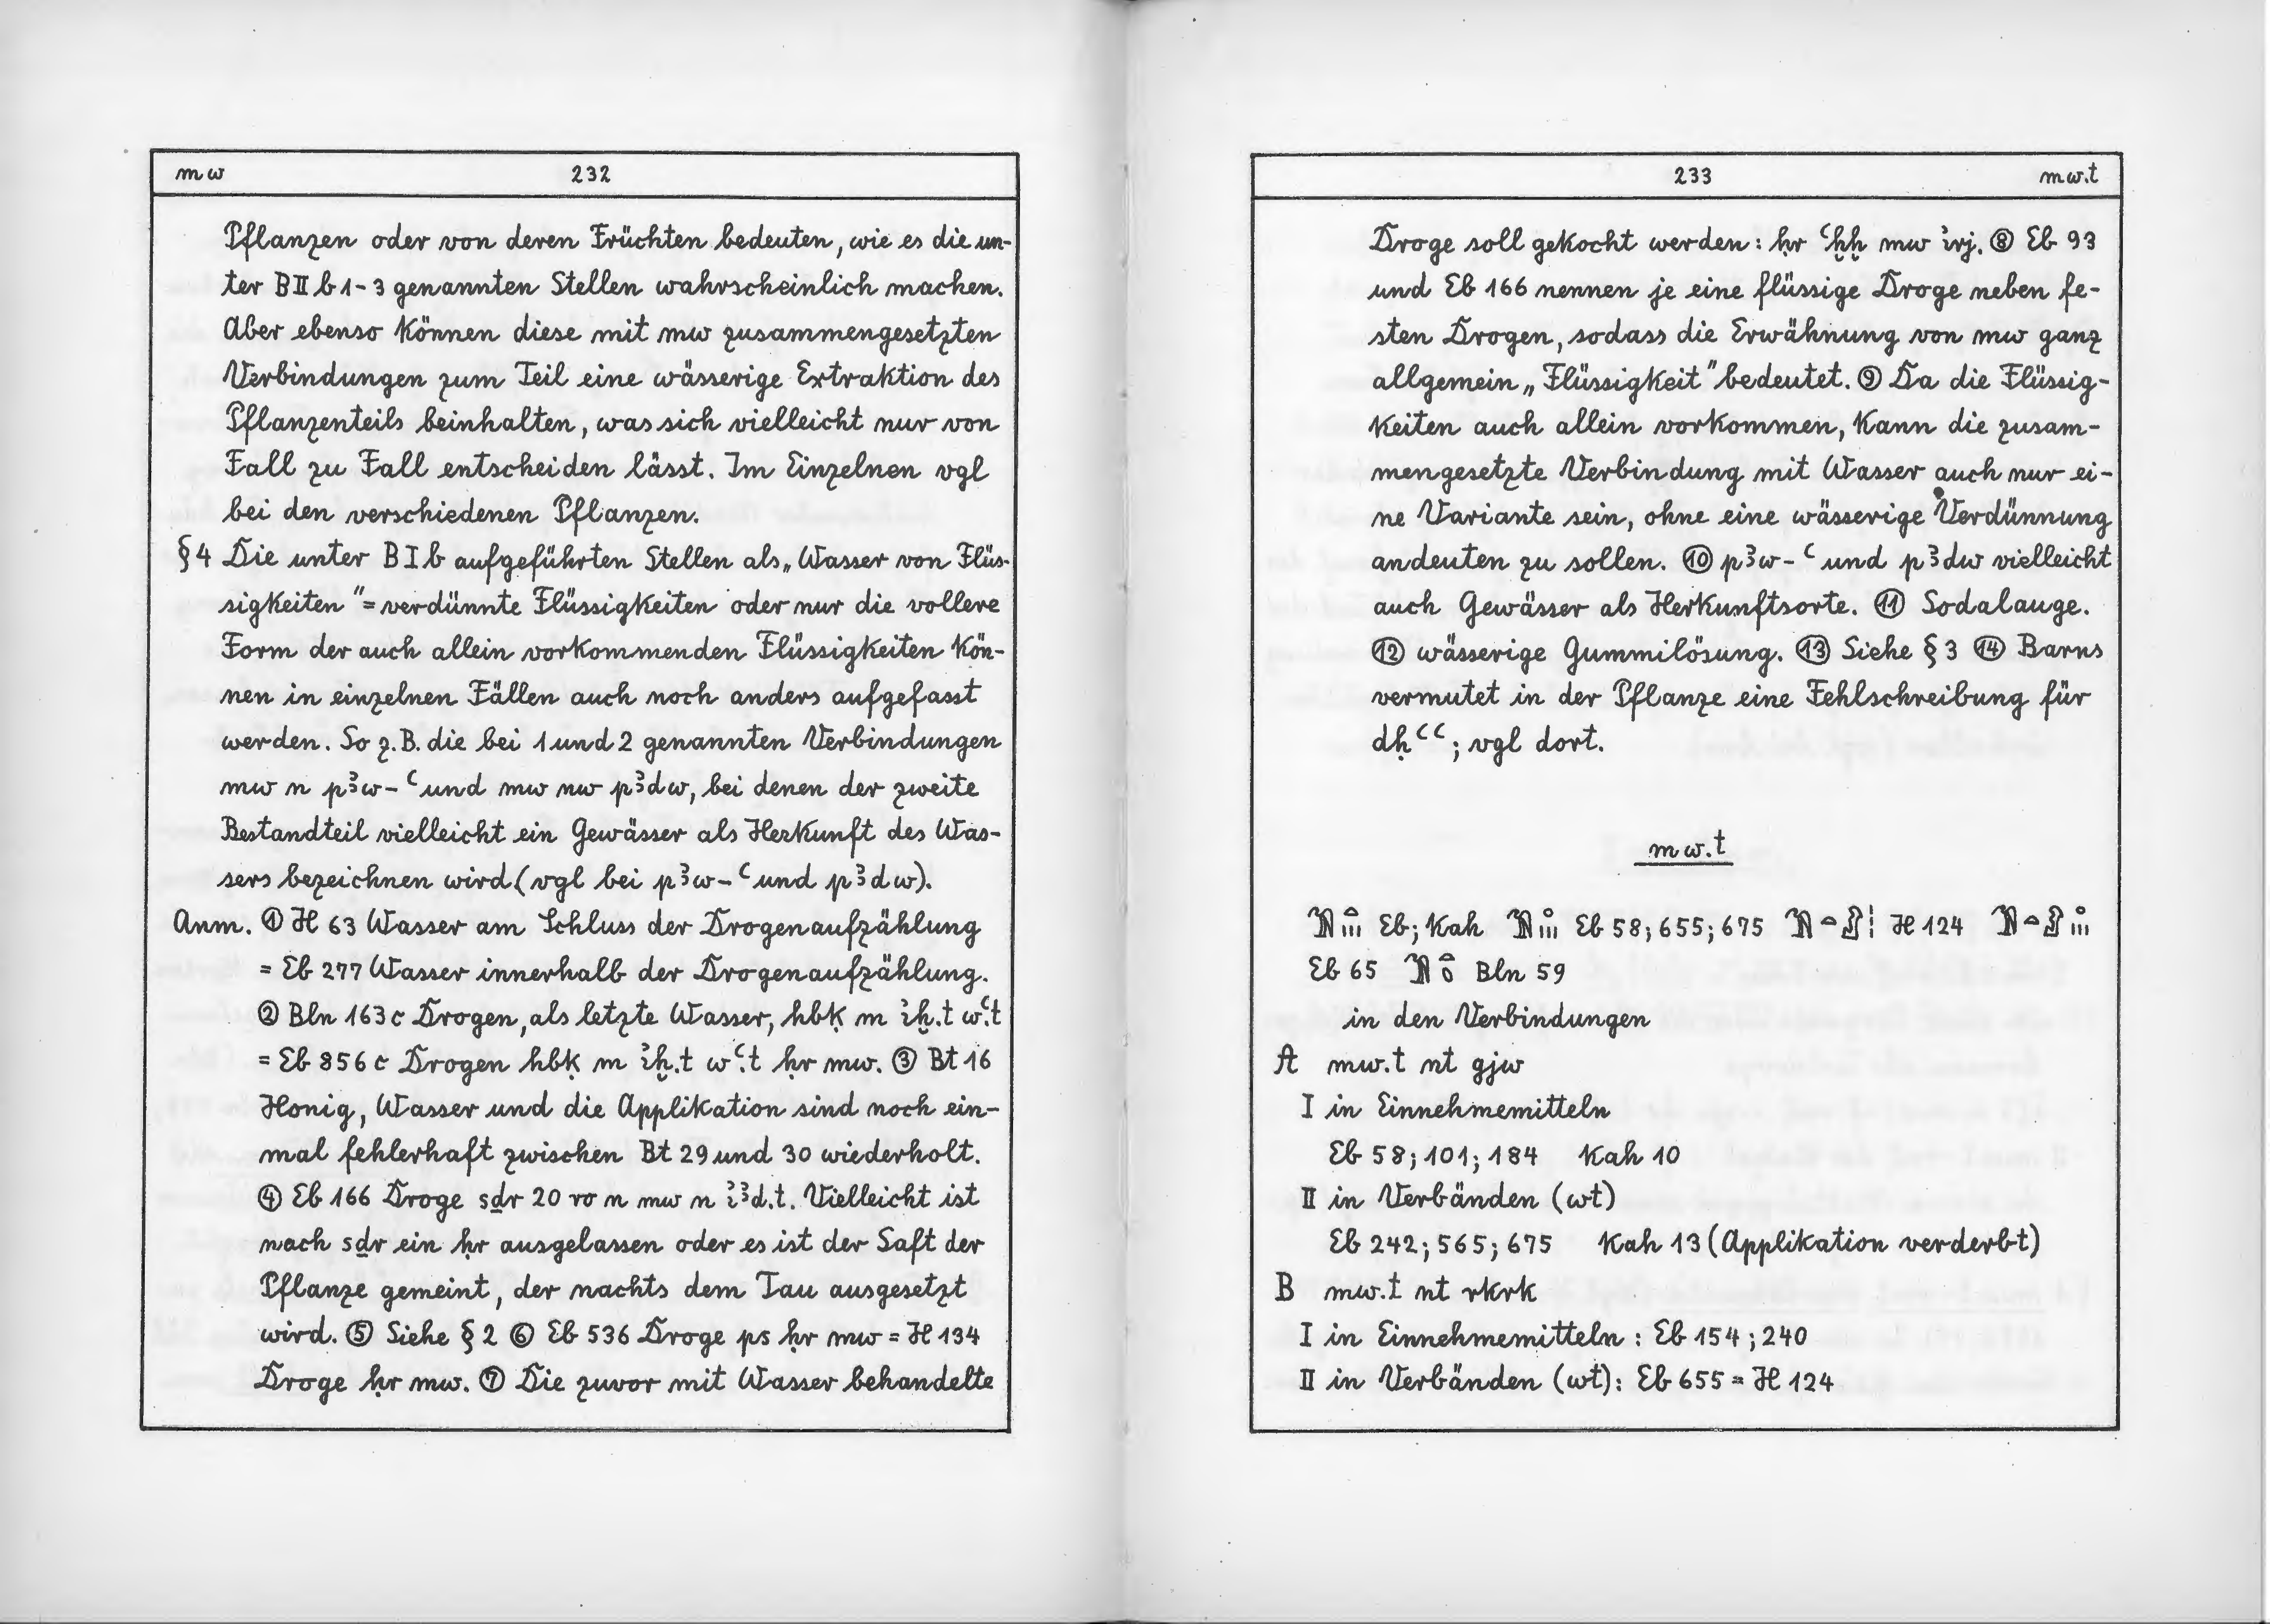 mw 232
Pflanzen oder von deren Früchten bedeuten, wie es die un-
ter B II b 1-3 genannten Stellen wahrscheinlich machen.
Aber ebenso können diese mit mw zusammengesetzten
Verbindungen zum Teil eine wässerige Extraktion des
Pflanzenteils beinhalten, was sich vielleicht nur von
Fall zu Fall entscheiden lässt. Im Einzelnen vgl
bei den verschiedenen Pflanzen.
§ 4 Die unter B I b aufgeführten Stellen als „Wasser von Flüs-
sigkeiten" = verdünnte Flüssigkeiten oder nur die vollere
Form der auch allein vorkommenden Flüssigkeiten kön-
nen in einzelnen Fällen auch noch anders aufgefasst
werden. So z.B. die bei 1 und 2 genannten Verbindungen
mw n pꜣw-ꜥ und mw nw pꜣdw, bei denen der zweite
Bestandteil vielleicht ein Gewässer als Herkunft des Was-
sers bezeichnen wird (vgl bei pꜣw-ꜥ und pꜣdw).
Anm. ① H 63 Wasser am Schluss der Drogenaufzählung
= Eb 277 Wasser innerhalb der Drogenaufzählung.
② Bln 163 c Drogen, als letzte Wasser, hbḳ m ꞽḫ.t wꜥ.t
= Eb 856 c Drogen hbḳ m ꞽḫ.t wꜥ.t ḥr mw. ③ Bt 16
Honig, Wasser und die Applikation sind noch ein-
mal fehlerhaft zwischen Bt 29 und 30 wiederholt.
④ Eb 166 Droge sḏr 20 ro n mw n ꞽꜣd.t. Vielleicht ist
nach sḏr ein ḥr ausgelassen oder es ist der Saft der
Pflanze gemeint, der nachts dem Tau ausgesetzt
wird. ⑤ Siehe § 2 ⑥ Eb 536 Droge ps ḥr mw = H 134
Droge ḥr mw. ⑦ Die zuvor mit Wasser behandelte
233 mw.t
Droge soll gekocht werden: ḥr ꜥḫḫ mw ꞽrj. ⑧ Eb 93
und Eb 166 nennen je eine flüssige Droge neben fe-
sten Drogen, sodass die Erwähnung von mw ganz
allgemein „Flüssigkeit" bedeutet. ⑨ Da die Flüssig-
keiten auch allein vorkommen, kann die zusam-
mengesetzte Verbindung mit Wasser auch nur ei-
ne Variante sein, ohne eine wässerige Verdünnung
andeuten zu sollen. ⑩ pꜣw-ꜥ und pꜣdw vielleicht
auch Gewässer als Herkunftsorte. ⑪ Sodalauge.
⑫ wässerige Gummilösung. ⑬ Siehe § 3 ⑭ Barns
vermutet in der Pflanze eine Fehlschreibung für
dḥꜥꜥ; vgl dort.
mw.t
Eb; Kah Eb 58; 655; 675 H 124
Eb 65 Bln 59
in den Verbindungen
A mw.t nt gjw
I in Einnehmemitteln
Eb 58; 101; 184 Kah 10
II in Verbänden (wt)
Eb 242; 565; 675 Kah 13 (Applikation verderbt)
B mw.t nt rkrk
I in Einnehmemitteln: Eb 154; 240
II in Verbänden (wt): Eb 655 = H 124